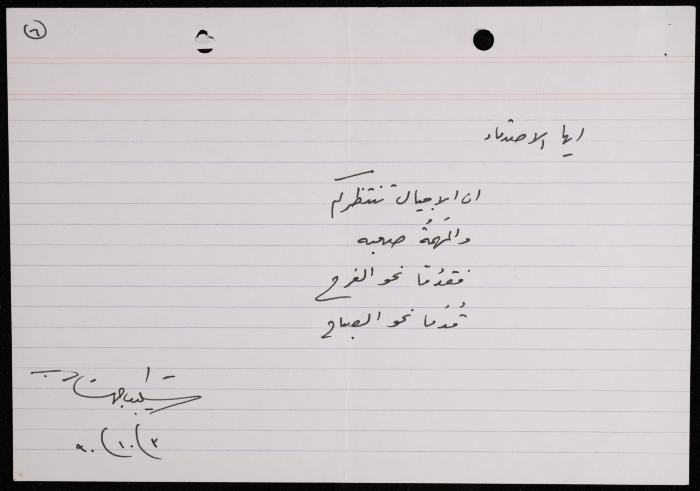 (٦)
ايها الاصدقاء
ان الاجيال تنتظركم
والمَهمةُ صعبه
فقدُمًا نحو الفرح
قُدُما نحو الصباح
٣/١٠/٩٠